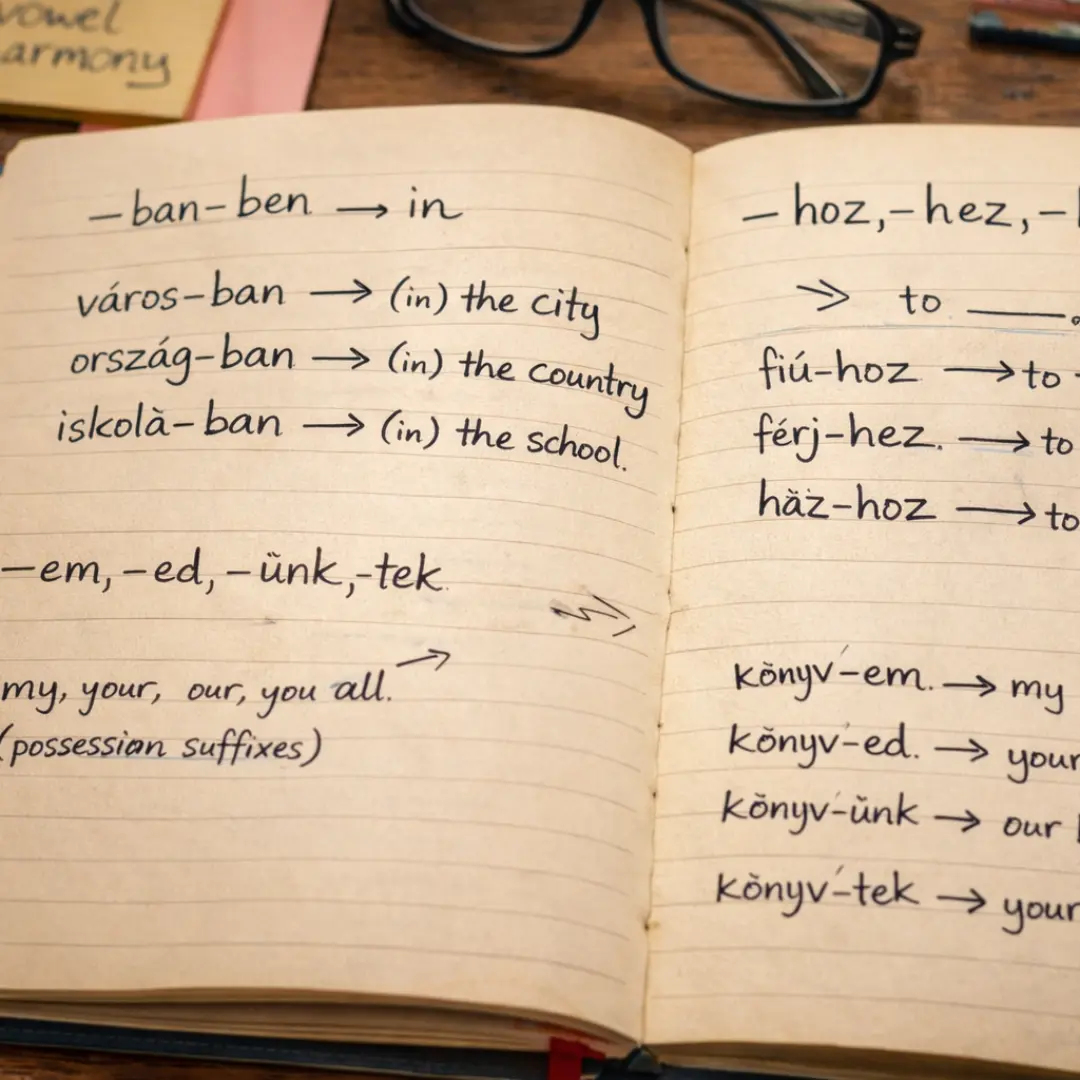 vowel
armony
–ban–ben → in
város–ban → (in) the city
ország–ban → (in) the country
iskolà–ban → (in) the school.
–em, –ed, –ünk,-tek.
my, your, our, you all.
(possessian suffixes)
–hoz,–hez,–
⇒ to ____.
fiú–hoz → to
férj–hez. → to
häz–hoz → to
könyv–em. → my
könyv–ed. → your
könyv–ünk → our
könyv–tek → your